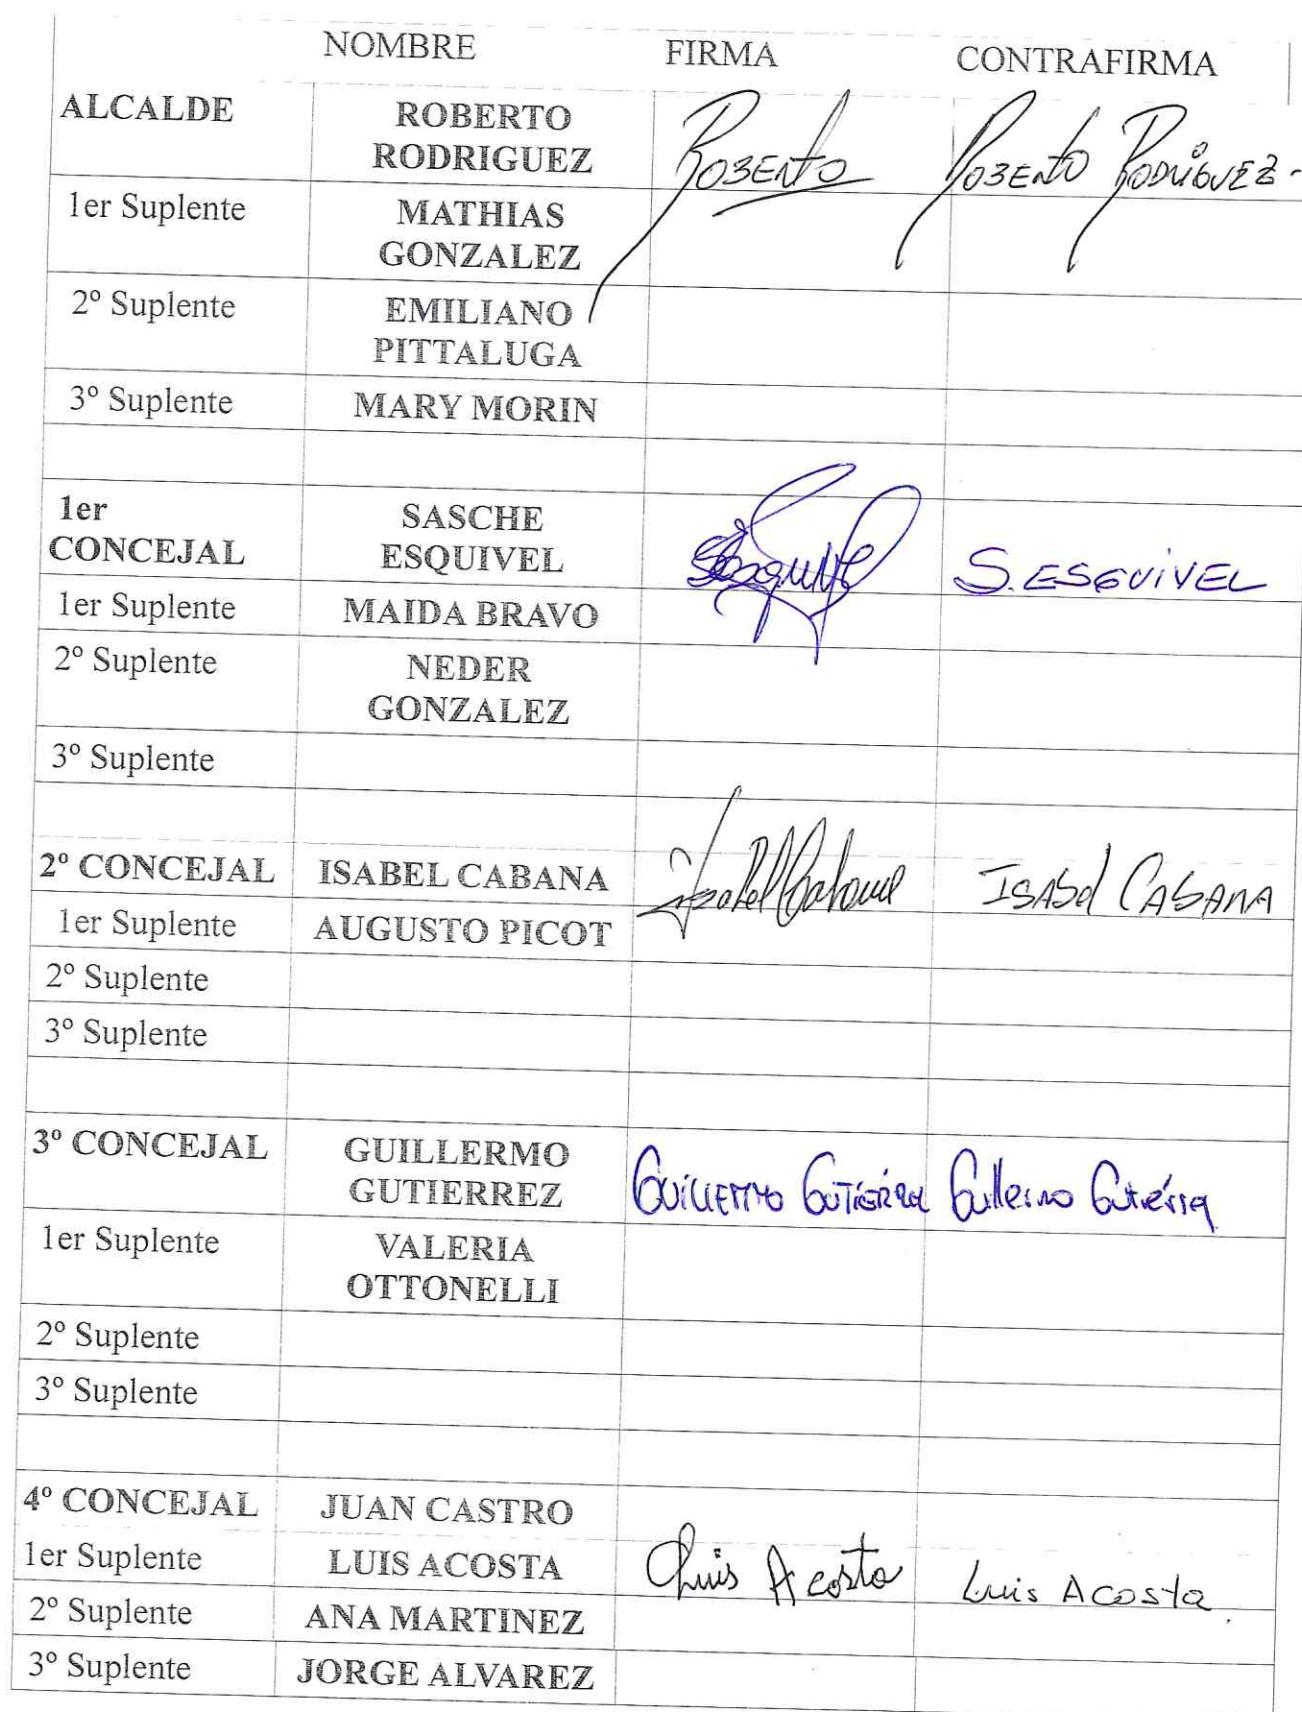 NOMBRE FIRMA CONTRAFIRMA
ALCALDE ROBERTO RODRIGUEZ Roberto Roberto Rodriguez-
1er Suplente MATHIAS GONZALEZ
2º Suplente EMILIANO PITTALUGA
3º Suplente MARY MORIN
1er CONCEJAL SASCHE ESQUIVEL S. ESQUIVEL
1er Suplente MAIDA BRAVO
2º Suplente NEDER GONZALEZ
3º Suplente
2º CONCEJAL ISABEL CABANA Isabel Cabana ISABel CABANA
1er Suplente AUGUSTO PICOT
2º Suplente
3º Suplente
3º CONCEJAL GUILLERMO GUTIERREZ GUILLERMO GUTIÉRREZ Guillermo Gutiérrez
1er Suplente VALERIA OTTONELLI
2º Suplente
3º Suplente
4º CONCEJAL JUAN CASTRO
1er Suplente LUIS ACOSTA Luis Acosta Luis Acosta.
2º Suplente ANA MARTINEZ
3º Suplente JORGE ALVAREZ